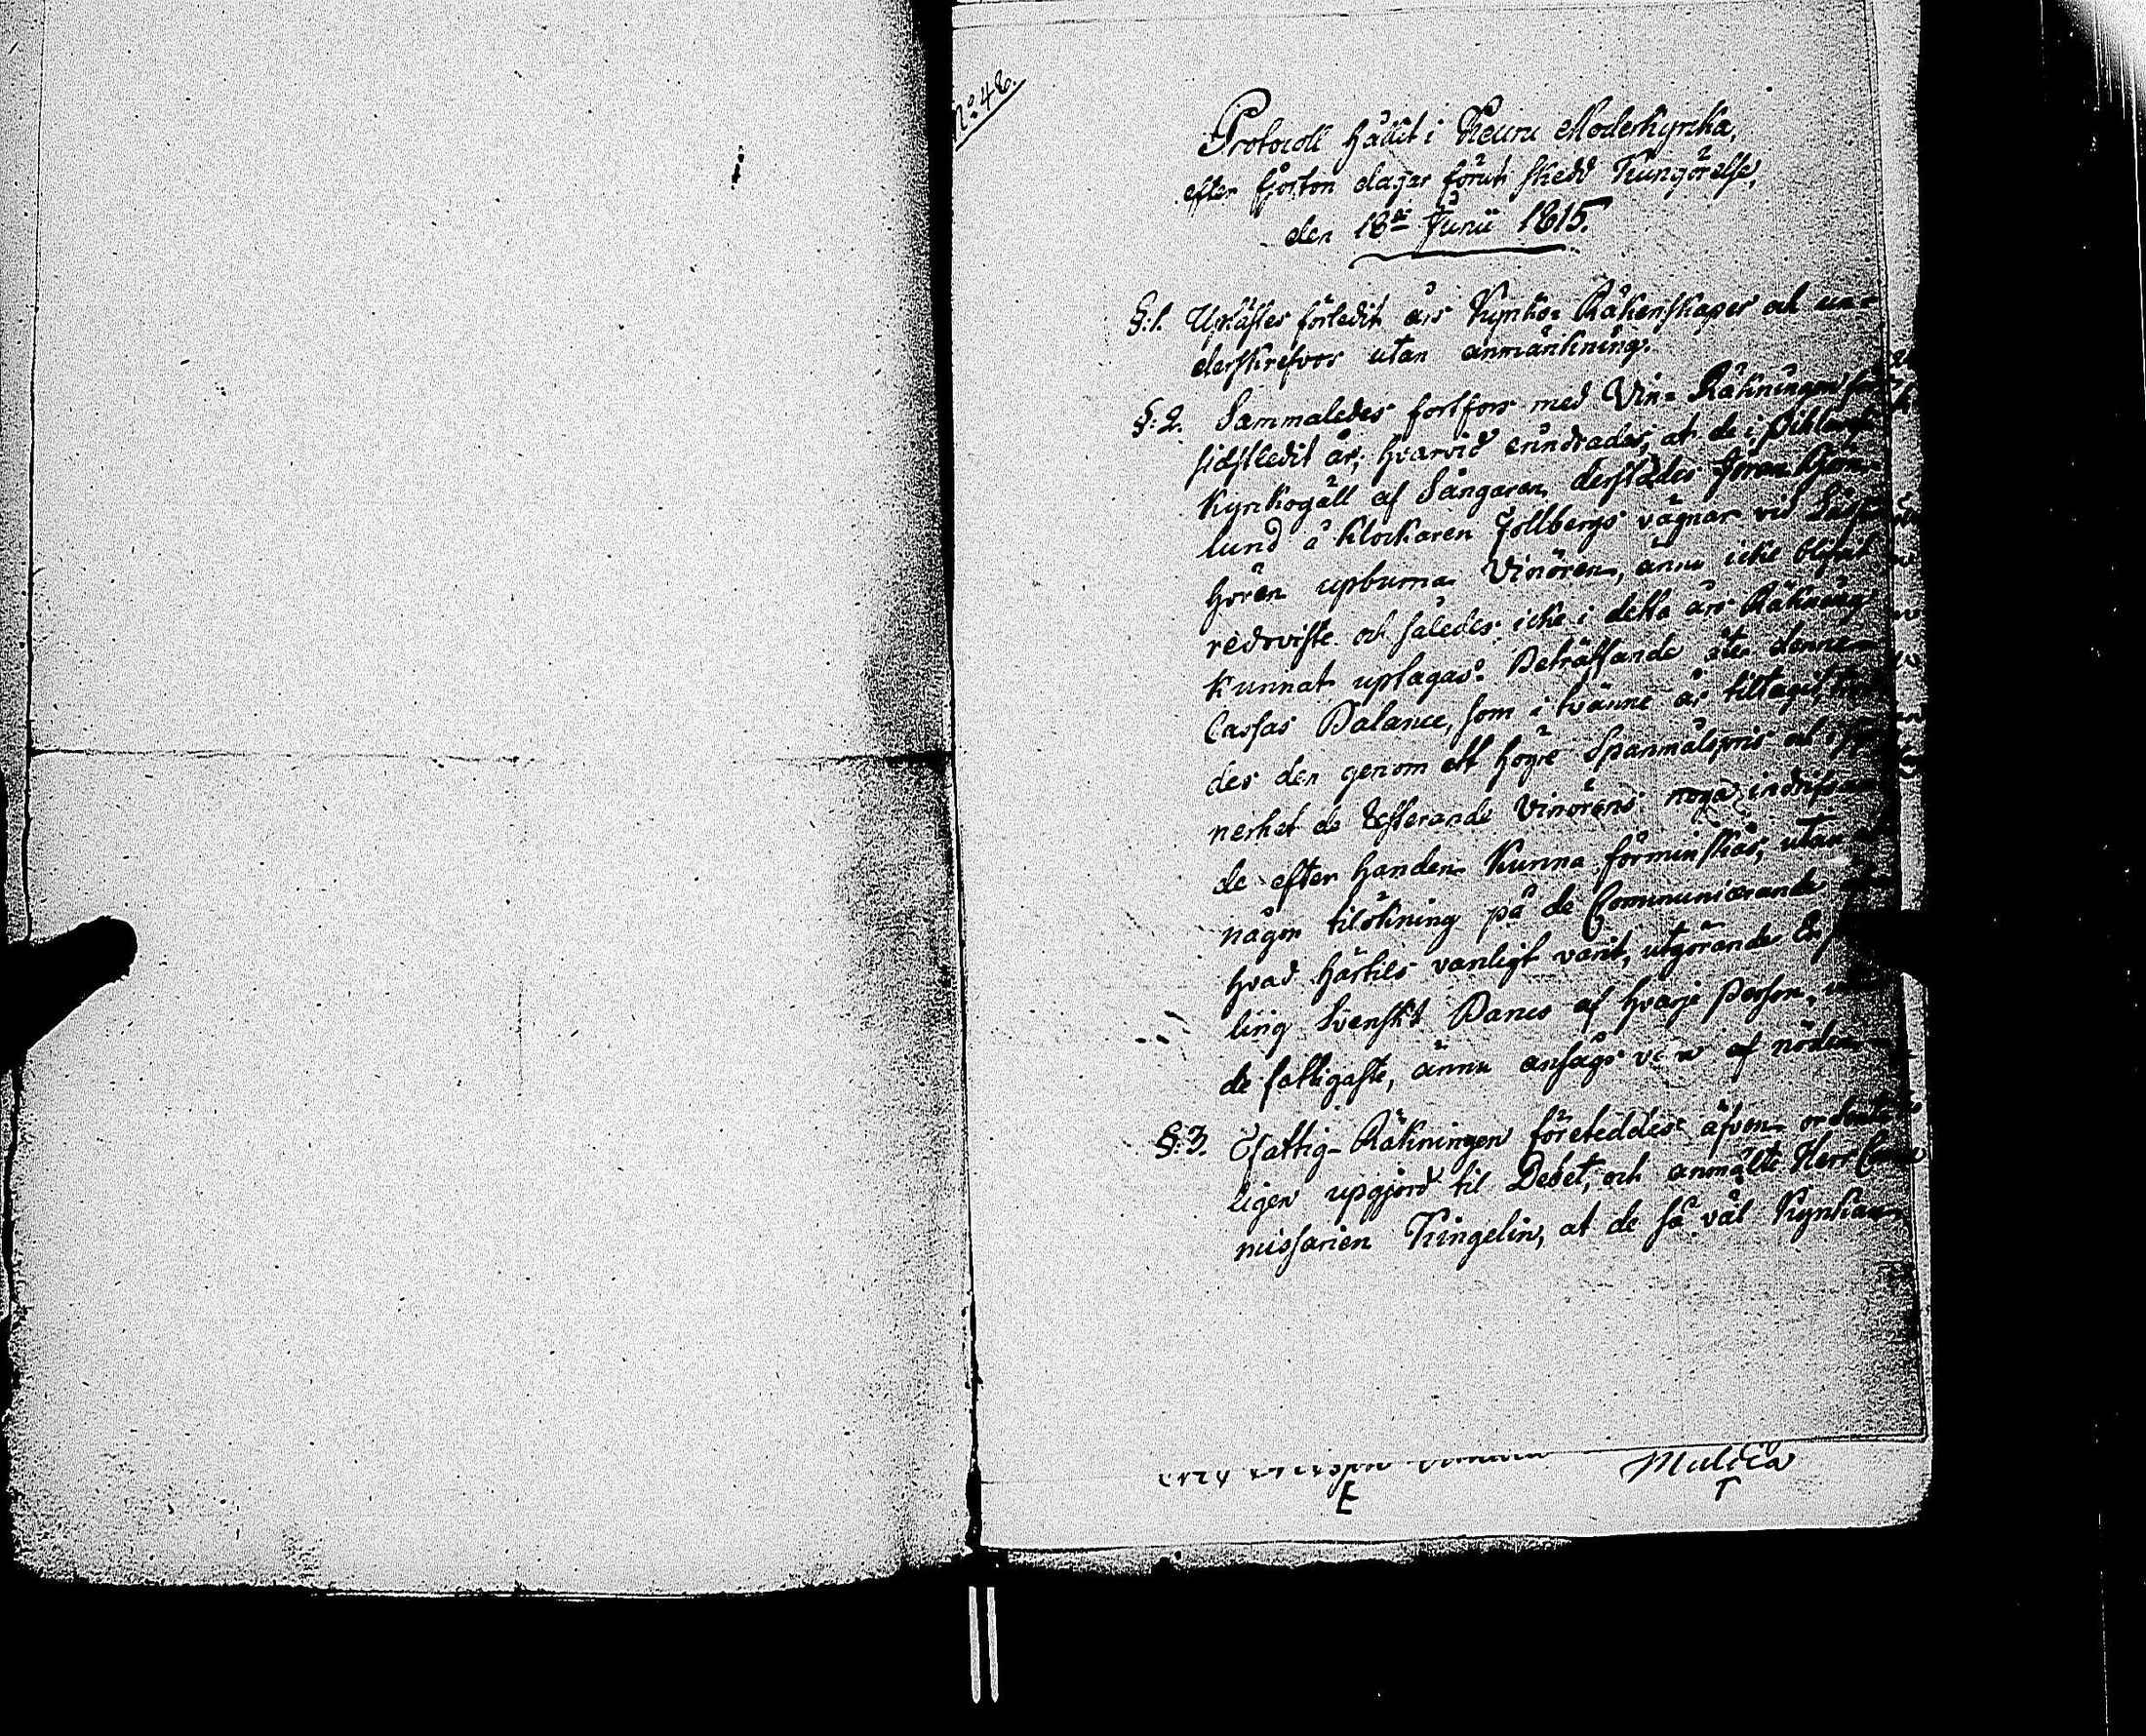 No: 48.
Protocoll hållit i Keuru Moderkyrka,
efter fjorton dagar förut skedd Kungörelse,
den 18de Junii 1815.
§:1. Uplästes förledit års Kyrko-Räkenskaper och un-
derskrefvos utan anmärkning.
§:2. Sammaledes fortfors med Vin-Räkningen för
sidstledit år, hvarvid erindrades, at de i Pihlavesi
Kyrkogäll af Sångaren derstädes Jöran Björk-
lund å Klockaren Follbergs vägnar vid Läsför-
hören upburna Vinören, ännu icke blifvit
redoviste och således icke i detta års Räkning
kunnat uptagas. Beträffande åter denna
Cassas Balance, som i tvänne år tiltagit,
des den genom ett högre Spanmålspris och
nerhet de resterande Vinörens noga indrifvan-
de efter handen kunna förminskas, utan
någon tilökning på de Communicerande
hvad härtils vanligt varit, utgörande En
ling Svenskt Banco af hvarje Person,
de fattigaste, ännu ansågs vara af nöden
§:3. Fattig-Räkningen företeddes äfven ordent-
ligen upgjord til Debet, och anmälte Herr Com-
missarien Kingelin, at de så väl Kyrkans
Mulica
E T